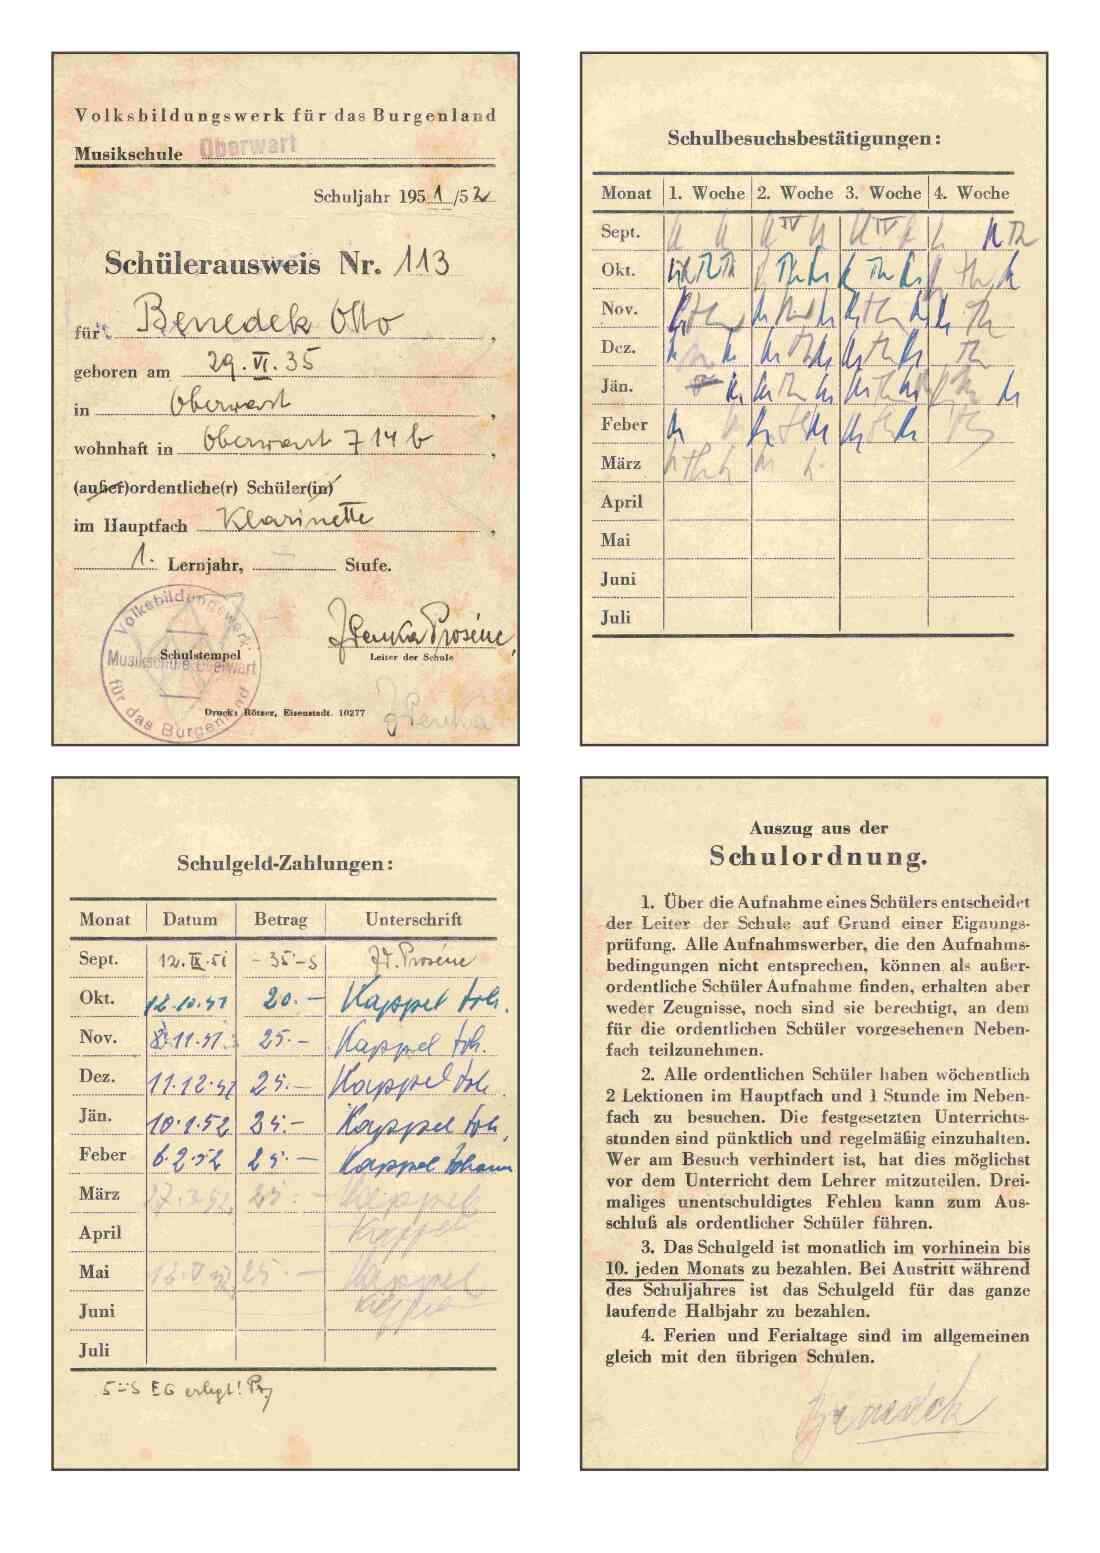 Volksbildungswerk für das Burgenland
Musikschule Oberwart
Schuljahr 1951/52
Schülerausweis Nr. 113
für Benedek Otto,
geboren am 29.VI.35
in Oberwart,
wohnhaft in Oberwart 714b,
(außer)ordentliche(r) Schüler(in)
im Hauptfach Klarinette,
1. Lernjahr, Stufe.
Volksbildungswerk
Musikschule Oberwart
für das Burgenland
Schulstempel
Leiter der Schule
Druck: Rötzer, Eisenstadt. 10277
Schulbesuchsbestätigungen:
Monat 1. Woche 2. Woche 3. Woche 4. Woche
Sept.
Okt.
Nov.
Dez.
Jän.
Feber
März
April
Mai
Juni
Juli
Schulgeld-Zahlungen:
Monat Datum Betrag Unterschrift
Sept. 12.IX.51 -35.-S Prosénc
Okt. 12.10.51 20.- Kappel Joh.
Nov. 8.11.51. 25.- Kappel Joh.
Dez. 11.12.51 25.- Kappel Joh.
Jän. 10.1.52 25.- Kappel Joh.
Feber 6.2.52 25.- Kappel Johann
März 25.- Kappel
April Kappel
Mai 25.- Kappel
Juni Kappel
Juli
EG erlegt!
Auszug aus der
Schulordnung.
1. Über die Aufnahme eines Schülers entscheidet
der Leiter der Schule auf Grund einer Eignungs-
prüfung. Alle Aufnahmswerber, die den Aufnahms-
bedingungen nicht entsprechen, können als außer-
ordentliche Schüler Aufnahme finden, erhalten aber
weder Zeugnisse, noch sind sie berechtigt, an dem
für die ordentlichen Schüler vorgesehenen Neben-
fach teilzunehmen.
2. Alle ordentlichen Schüler haben wöchentlich
2 Lektionen im Hauptfach und 1 Stunde im Neben-
fach zu besuchen. Die festgesetzten Unterrichts-
stunden sind pünktlich und regelmäßig einzuhalten.
Wer am Besuch verhindert ist, hat dies möglichst
vor dem Unterricht dem Lehrer mitzuteilen. Drei-
maliges unentschuldigtes Fehlen kann zum Aus-
schluß als ordentlicher Schüler führen.
3. Das Schulgeld ist monatlich im vorhinein bis
10. jeden Monats zu bezahlen. Bei Austritt während
des Schuljahres ist das Schulgeld für das ganze
laufende Halbjahr zu bezahlen.
4. Ferien und Ferialtage sind im allgemeinen
gleich mit den übrigen Schulen.
Benedek